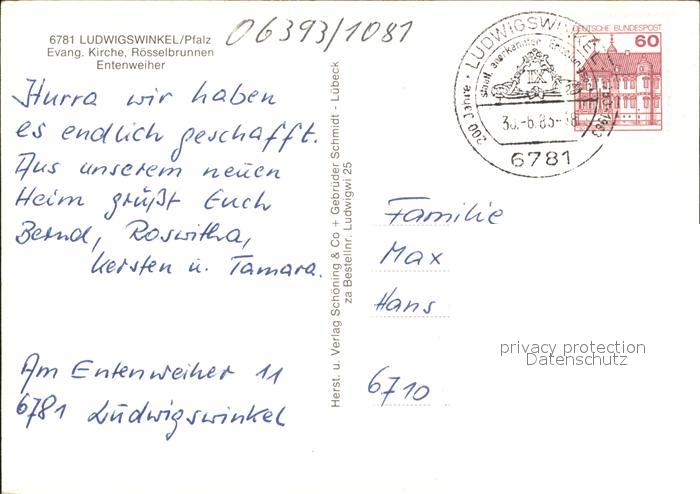 6781 LUDWIGSWINKEL/Pfalz
Evang. Kirche, Rösselbrunnen
Entenweiher
06393/1081
Hurra wir haben
es endlich geschafft.
Aus unserem neuen
Heim grüßt Euch
Bernd, Roswitha,
Kersten u. Tamara.
Am Entenweiher 11
6781 Ludwigswinkel
Herst. u. Verlag Schöning & Co + Gebrüder Schmidt - Lübeck
za Bestellnr. Ludwigwi 25
LUDWIGSWINKEL
200 Jahre
staatl. anerkannter
IX
30.-6.83-18
1983
6781
DEUTSCHE BUNDESPOST
60
Familie
Max
Hans
6710
privacy protection
Datenschutz